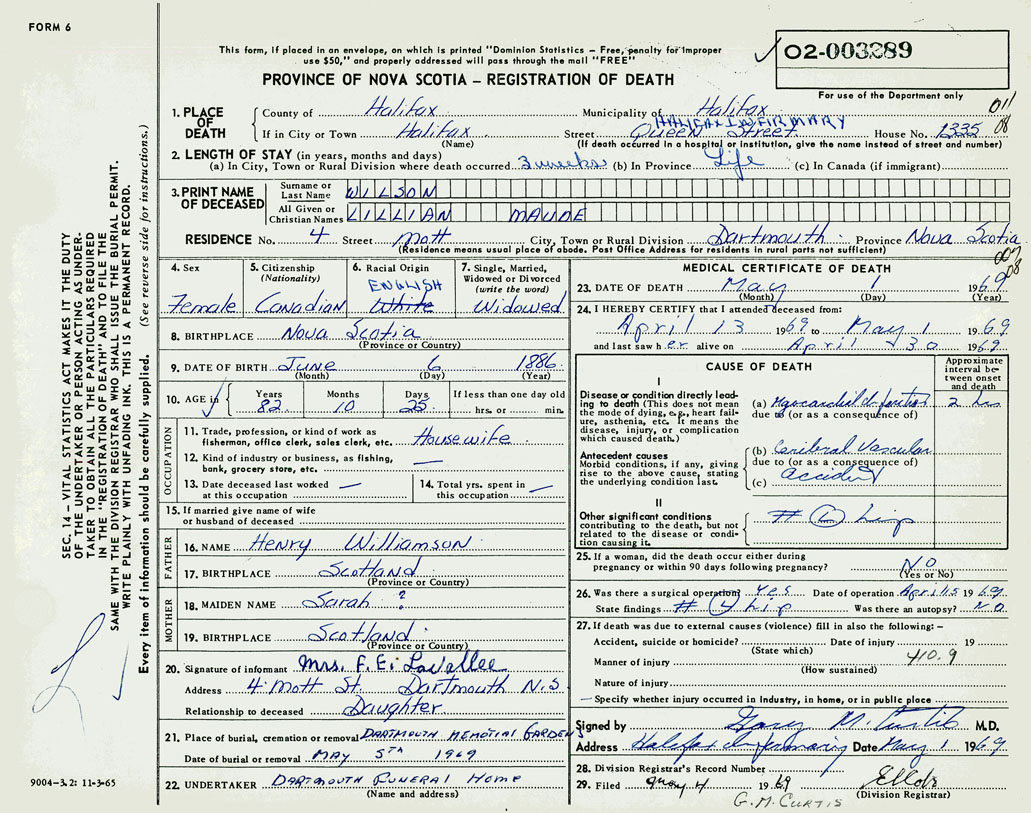 FORM 6
This form, if placed in an envelope, on which is printed "Dominion Statistics – Free, penalty for improper
use $50," and properly addressed will pass through the mail "FREE"
02-003289
For use of the Department only
PROVINCE OF NOVA SCOTIA – REGISTRATION OF DEATH
011
08
1. PLACE OF DEATH County of Halifax Municipality of Halifax
HALIFAX INFIRMARY
If in City or Town Halifax Street Queen Street House No. 1335
(Name) (If death occurred in a hospital or institution, give the name instead of street and number)
2. LENGTH OF STAY (in years, months and days)
(a) In City, Town or Rural Division where death occurred 3 weeks (b) In Province Life (c) In Canada (if immigrant)
3. PRINT NAME OF DECEASED Surname or Last Name WILSON
All Given or Christian Names LILLIAN MAUDE
RESIDENCE No. 4 Street Mott City, Town or Rural Division Dartmouth Province Nova Scotia
(Residence means usual place of abode. Post Office Address for residents in rural parts not sufficient)
007
08
4. Sex Female
5. Citizenship (Nationality) Canadian
6. Racial Origin ENGLISH White
7. Single, Married, Widowed or Divorced (write the word) Widowed
8. BIRTHPLACE Nova Scotia
(Province or Country)
9. DATE OF BIRTH June 6 1886
(Month) (Day) (Year)
10. AGE in Years Months Days If less than one day old
82 10 25 hrs. or min.
OCCUPATION
11. Trade, profession, or kind of work as
fisherman, office clerk, sales clerk, etc. Housewife
12. Kind of industry or business, as fishing,
bank, grocery store, etc. —
13. Date deceased last worked
at this occupation —
14. Total yrs. spent in
this occupation —
15. If married give name of wife
or husband of deceased
FATHER
16. NAME Henry Williamson
17. BIRTHPLACE Scotland
(Province or Country)
MOTHER
18. MAIDEN NAME Sarah ?
19. BIRTHPLACE Scotland
(Province or Country)
20. Signature of informant Mrs. F. E. LaVallee
Address 4 Mott St. Dartmouth N.S.
Relationship to deceased Daughter
21. Place of burial, cremation or removal DARTMOUTH MEMORIAL GARDENS
Date of burial or removal MAY 5TH 1969
22. UNDERTAKER DARTMOUTH FUNERAL HOME
(Name and address)
MEDICAL CERTIFICATE OF DEATH
23. DATE OF DEATH May 1 1969
(Month) (Day) (Year)
24. I HEREBY CERTIFY that I attended deceased from:
April 13 1969 to May 1 1969
and last saw her alive on April 30 1969
CAUSE OF DEATH
Approximate interval between onset and death
I
Disease or condition directly lead-
ing to death (This does not mean
the mode of dying, e.g., heart fail-
ure, asthenia, etc. It means the
disease, injury, or complication
which caused death.)
(a) Myocardial Infarction 2 hrs
due to (or as a consequence of)
Antecedent causes
Morbid conditions, if any, giving
rise to the above cause, stating
the underlying condition last.
(b) Ceribral Vascular
due to (or as a consequence of)
(c) Accident
II
Other significant conditions
contributing to the death, but not
related to the disease or condi-
tion causing it.
# L hip
25. If a woman, did the death occur either during
pregnancy or within 90 days following pregnancy? NO
(Yes or No)
26. Was there a surgical operation? Yes Date of operation April 15 1969
State findings # L hip Was there an autopsy? NO
27. If death was due to external causes (violence) fill in also the following: –
Accident, suicide or homicide? Date of injury 19
(State which)
Manner of injury 410.9
(How sustained)
Nature of injury
Specify whether injury occurred in Industry, in home, or in public place
Signed by Gary M. Curtis M.D.
Address Halifax Infirmary Date May 1 1969
28. Division Registrar's Record Number
29. Filed May 4 1969
(Division Registrar)
G.M. CURTIS
SEC. 14 – VITAL STATISTICS ACT MAKES IT THE DUTY
OF THE UNDERTAKER OR PERSON ACTING AS UNDER-
TAKER TO OBTAIN ALL THE PARTICULARS REQUIRED
IN THE "REGISTRATION OF DEATH" AND TO FILE THE
SAME WITH THE DIVISION REGISTRAR WHO SHALL ISSUE THE BURIAL PERMIT.
WRITE PLAINLY WITH UNFADING INK. THIS IS A PERMANENT RECORD.
Every item of information should be carefully supplied. (See reverse side for instructions.)
9004-3.2: 11-3-65